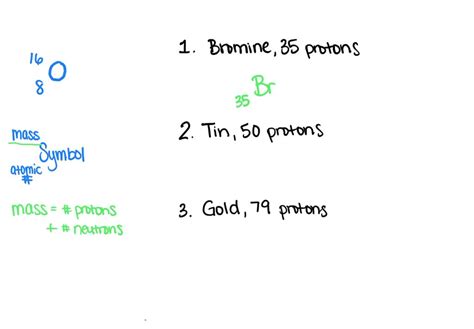 16
O
8
mass
Symbol
atomic
#
mass = # protons
+ # neutrons
1. Bromine, 35 protons
Br
35
2. Tin, 50 protons
3. Gold, 79 protons